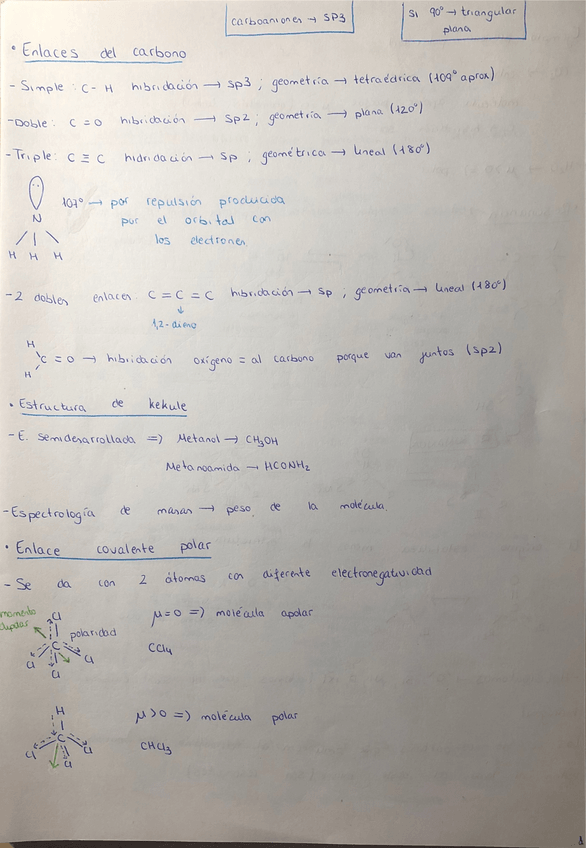 carboaniones → SP3
Si 90° → triangular
plana
• Enlaces del carbono
- Simple: C - H hibridación → sp3 ; geometría → tetraédrica (109° aprox)
- Doble: C = O hibridación → sp2 ; geometría → plana (120°)
- Triple: C ≡ C hidridación → sp ; geométrica → lineal (180°)
107° → por repulsión producida
por el orbital con
los electrones
N
H H H
- 2 dobles enlaces C = C = C hibridación → sp ; geometría → lineal (180°)
↓
1,2-dieno
H
C = O → hibridación oxígeno = al carbono porque van juntos (sp2)
H
• Estructura de kekule
- E. semidesarrollada => Metanol → CH3OH
Metanoamida → HCONH2
- Espectrología de masas → peso de la molécula.
• Enlace covalente polar
- Se da con 2 átomos con diferente electronegatividad
momento
dipolar
Cl
polaridad
C
Cl Cl
Cl
μ = 0 => molécula apolar
CCl4
H
C
Cl Cl
Cl
μ > 0 => molécula polar
CHCl3